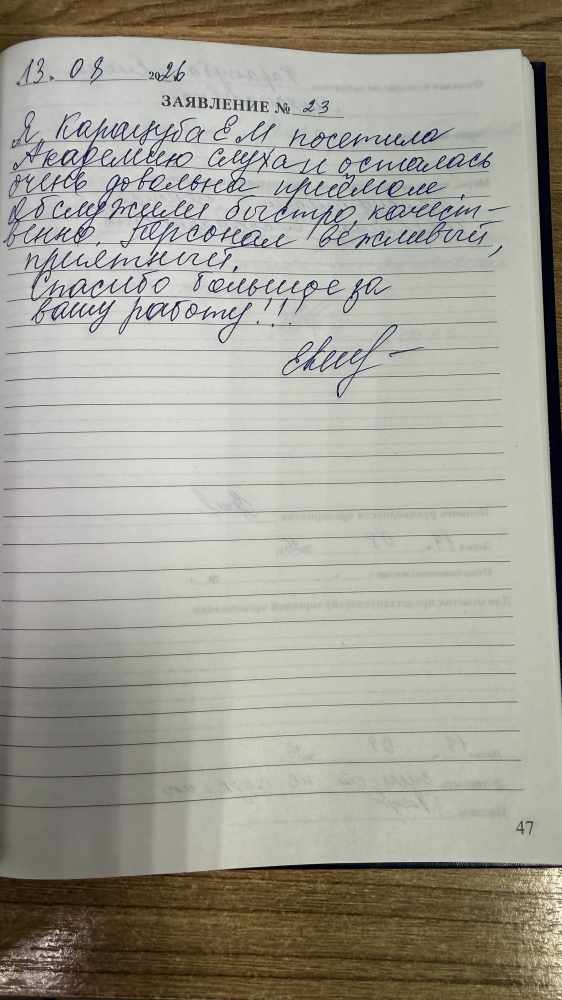 13. 08 2026
ЗАЯВЛЕНИЕ № 23
Я, Карацуба Е М посетила
Академию слуха и осталась
очень довольна приёмом.
Обслужили быстро, качест-
венно. Персонал вежливый,
приятный.
Спасибо большое за
вашу работу!!!
47